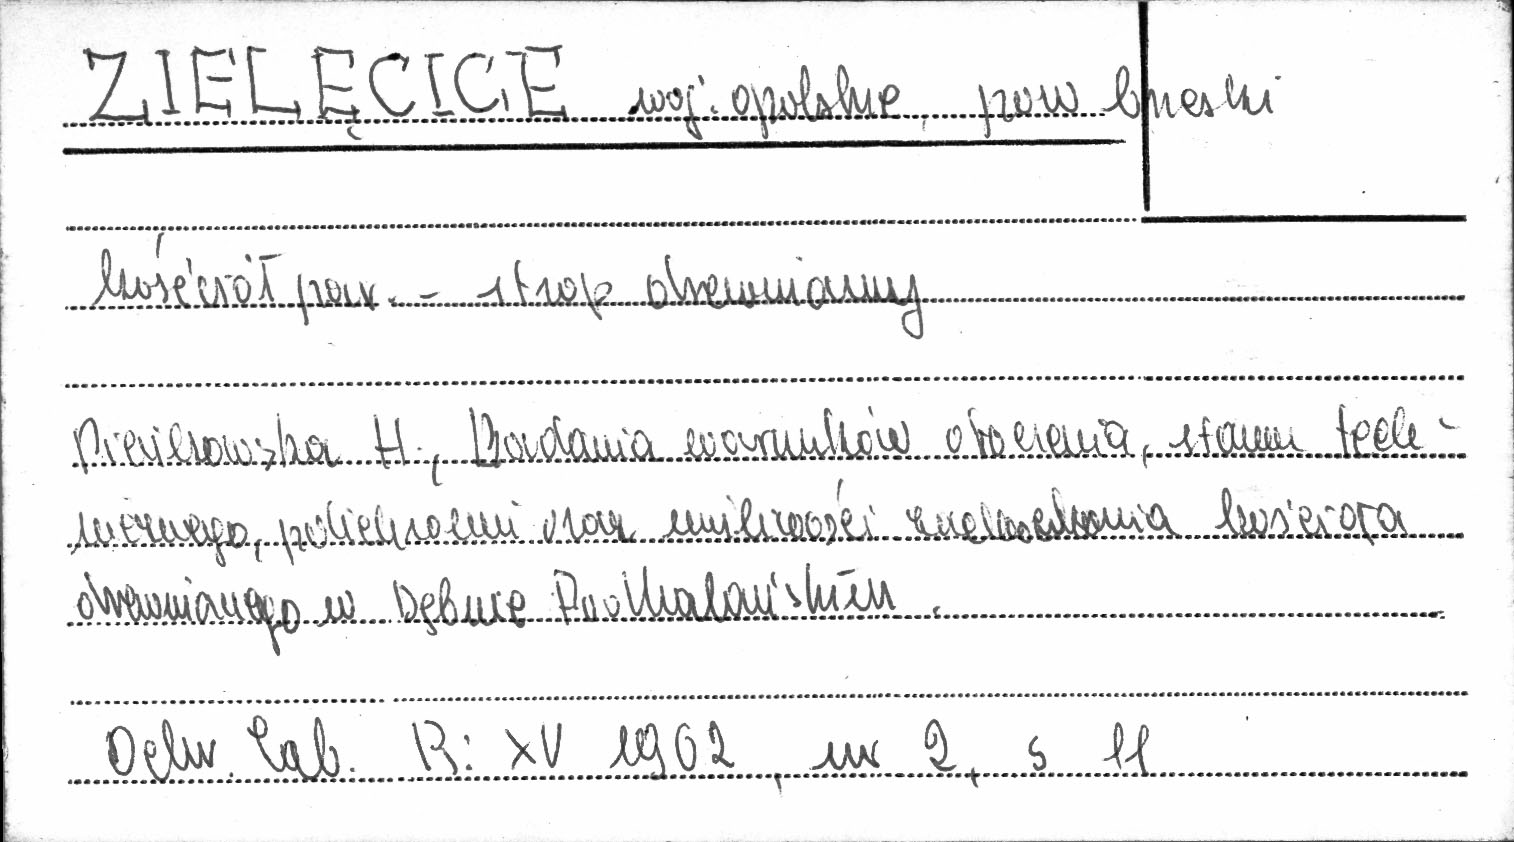 ZIELĘCICE woj. opolskie, pow brzeski
kościół par. - strop drewniany
Pieńkowska H., Badania warunków otoczenia, stanu tech-
nicznego, polichromii oraz możliwości kościoła
drewnianego w Dębnie Podhalańskim.
Ochr. Zab. R: XV 1962, nr 2, s 11